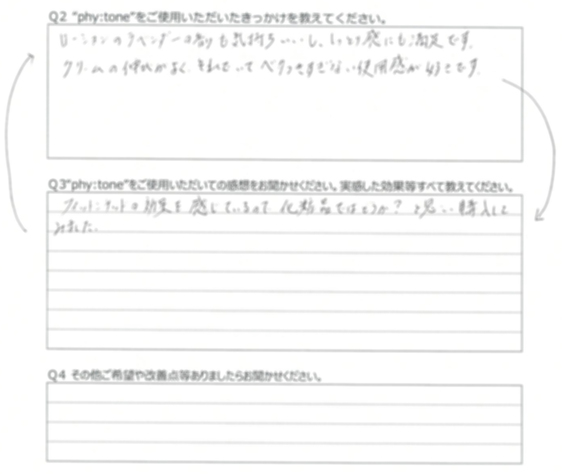 Q2 “phy:tone”をご使用いただいたきっかけを教えてください。
ローションのラベンダーの香りも気持ちいいし、しっとり感にも満足です。
クリームの伸びがよく、それでいてベタつきすぎない使用感が好きです。
Q3“phy:tone”をご使用いただいての感想をお聞かせください。実感した効果等すべて教えてください。
フィットネットの効果を感じているので 化粧品ではどうか？と思い購入して
みました。
Q4 その他ご希望や改善点等ありましたらお聞かせください。